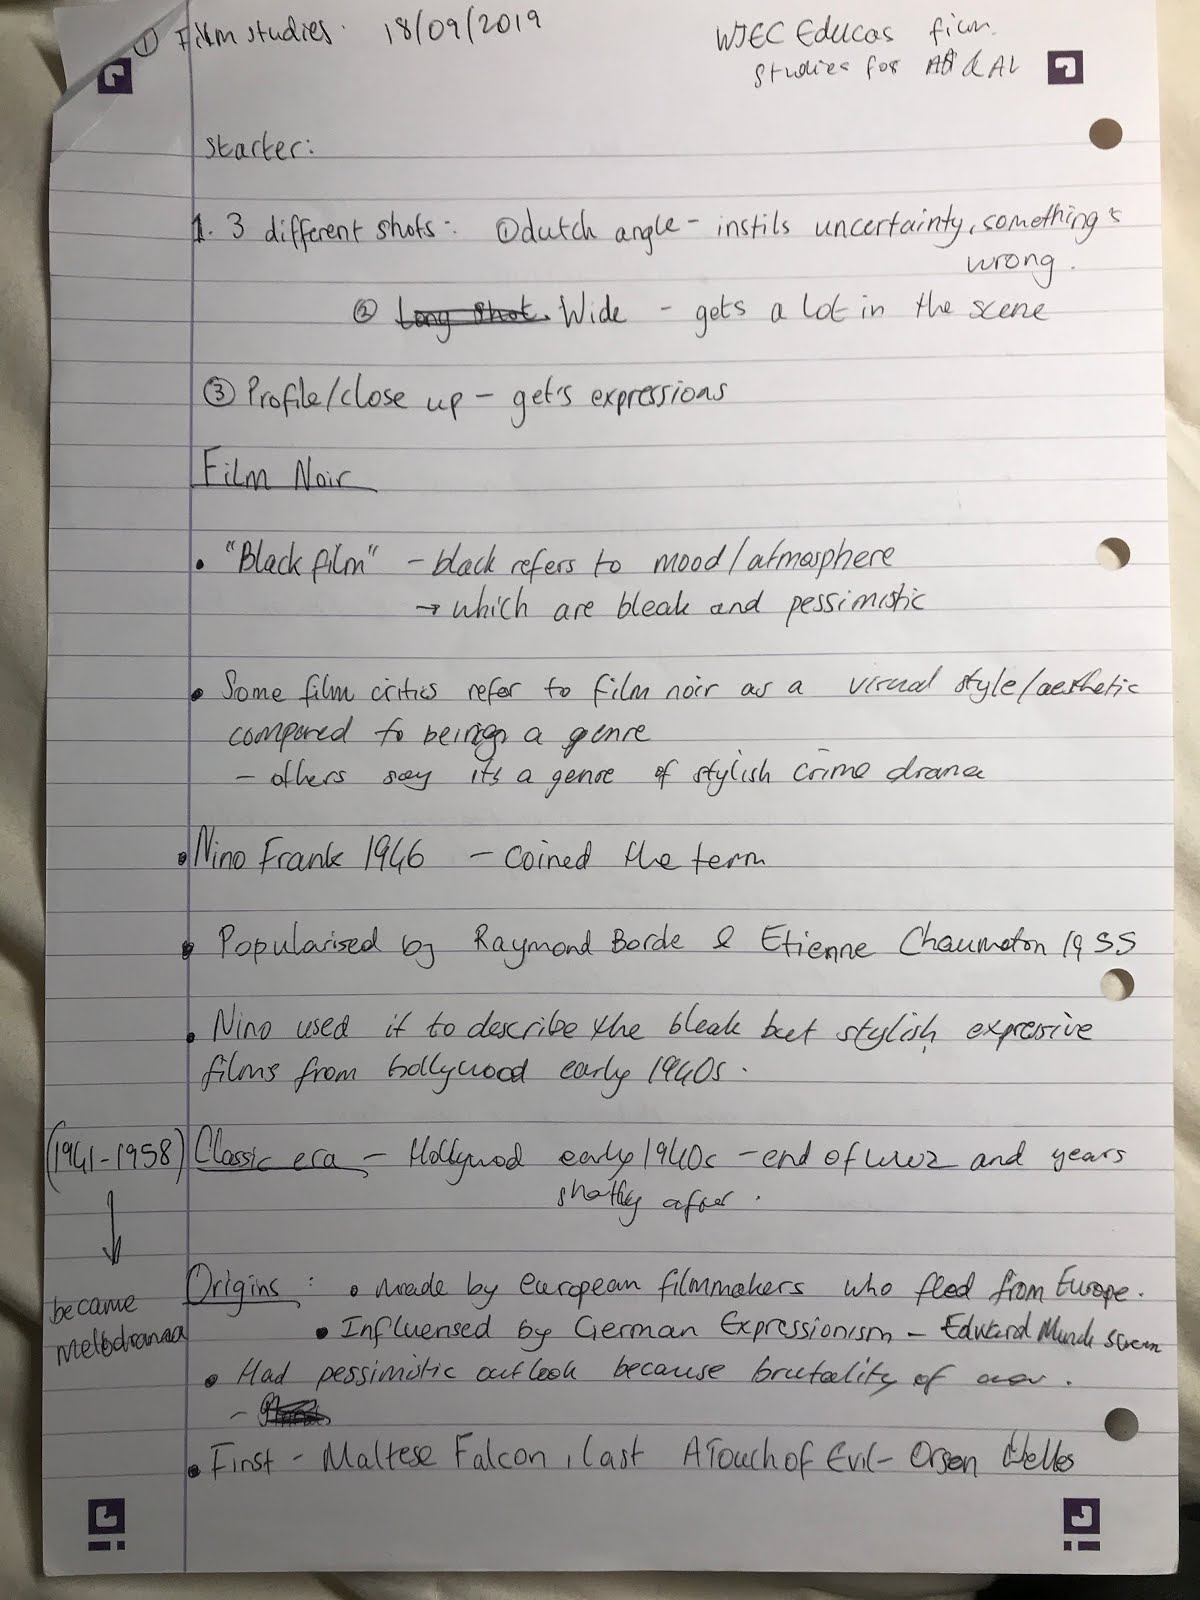 ① Film studies. 18/09/2019
WJEC Educas film
studies for AS & AL
starter:
1. 3 different shots:- ① dutch angle - instils uncertainty, something's
wrong.
② Long shot. Wide - gets a lot in the scene
③ Profile/close up - get's expressions
Film Noir
• "Black film" - black refers to mood/atmosphere
→ which are bleak and pessimistic
• Some film critics refer to film noir as a visual style/aesthetic
compared to being a genre
- others say its a genre of stylish crime drama
• Nino Frank 1946 - coined the term
• Popularised by Raymond Borde & Etienne Chaumeton 1955
• Nino used it to describe the bleak but stylish, expressive
films from hollywood early 1940s.
(1941-1958) Classic era - Hollywood early 1940s - end of WW2 and years
shortly after.
↓
became
melodrama
Origins: • made by european filmmakers who fled from Europe.
• Influensed by German Expressionism - Edward Munch scream
• Had pessimistic outlook because brutality of war.
-
• First - Maltese Falcon, last A Touch of Evil - Orsen Welles